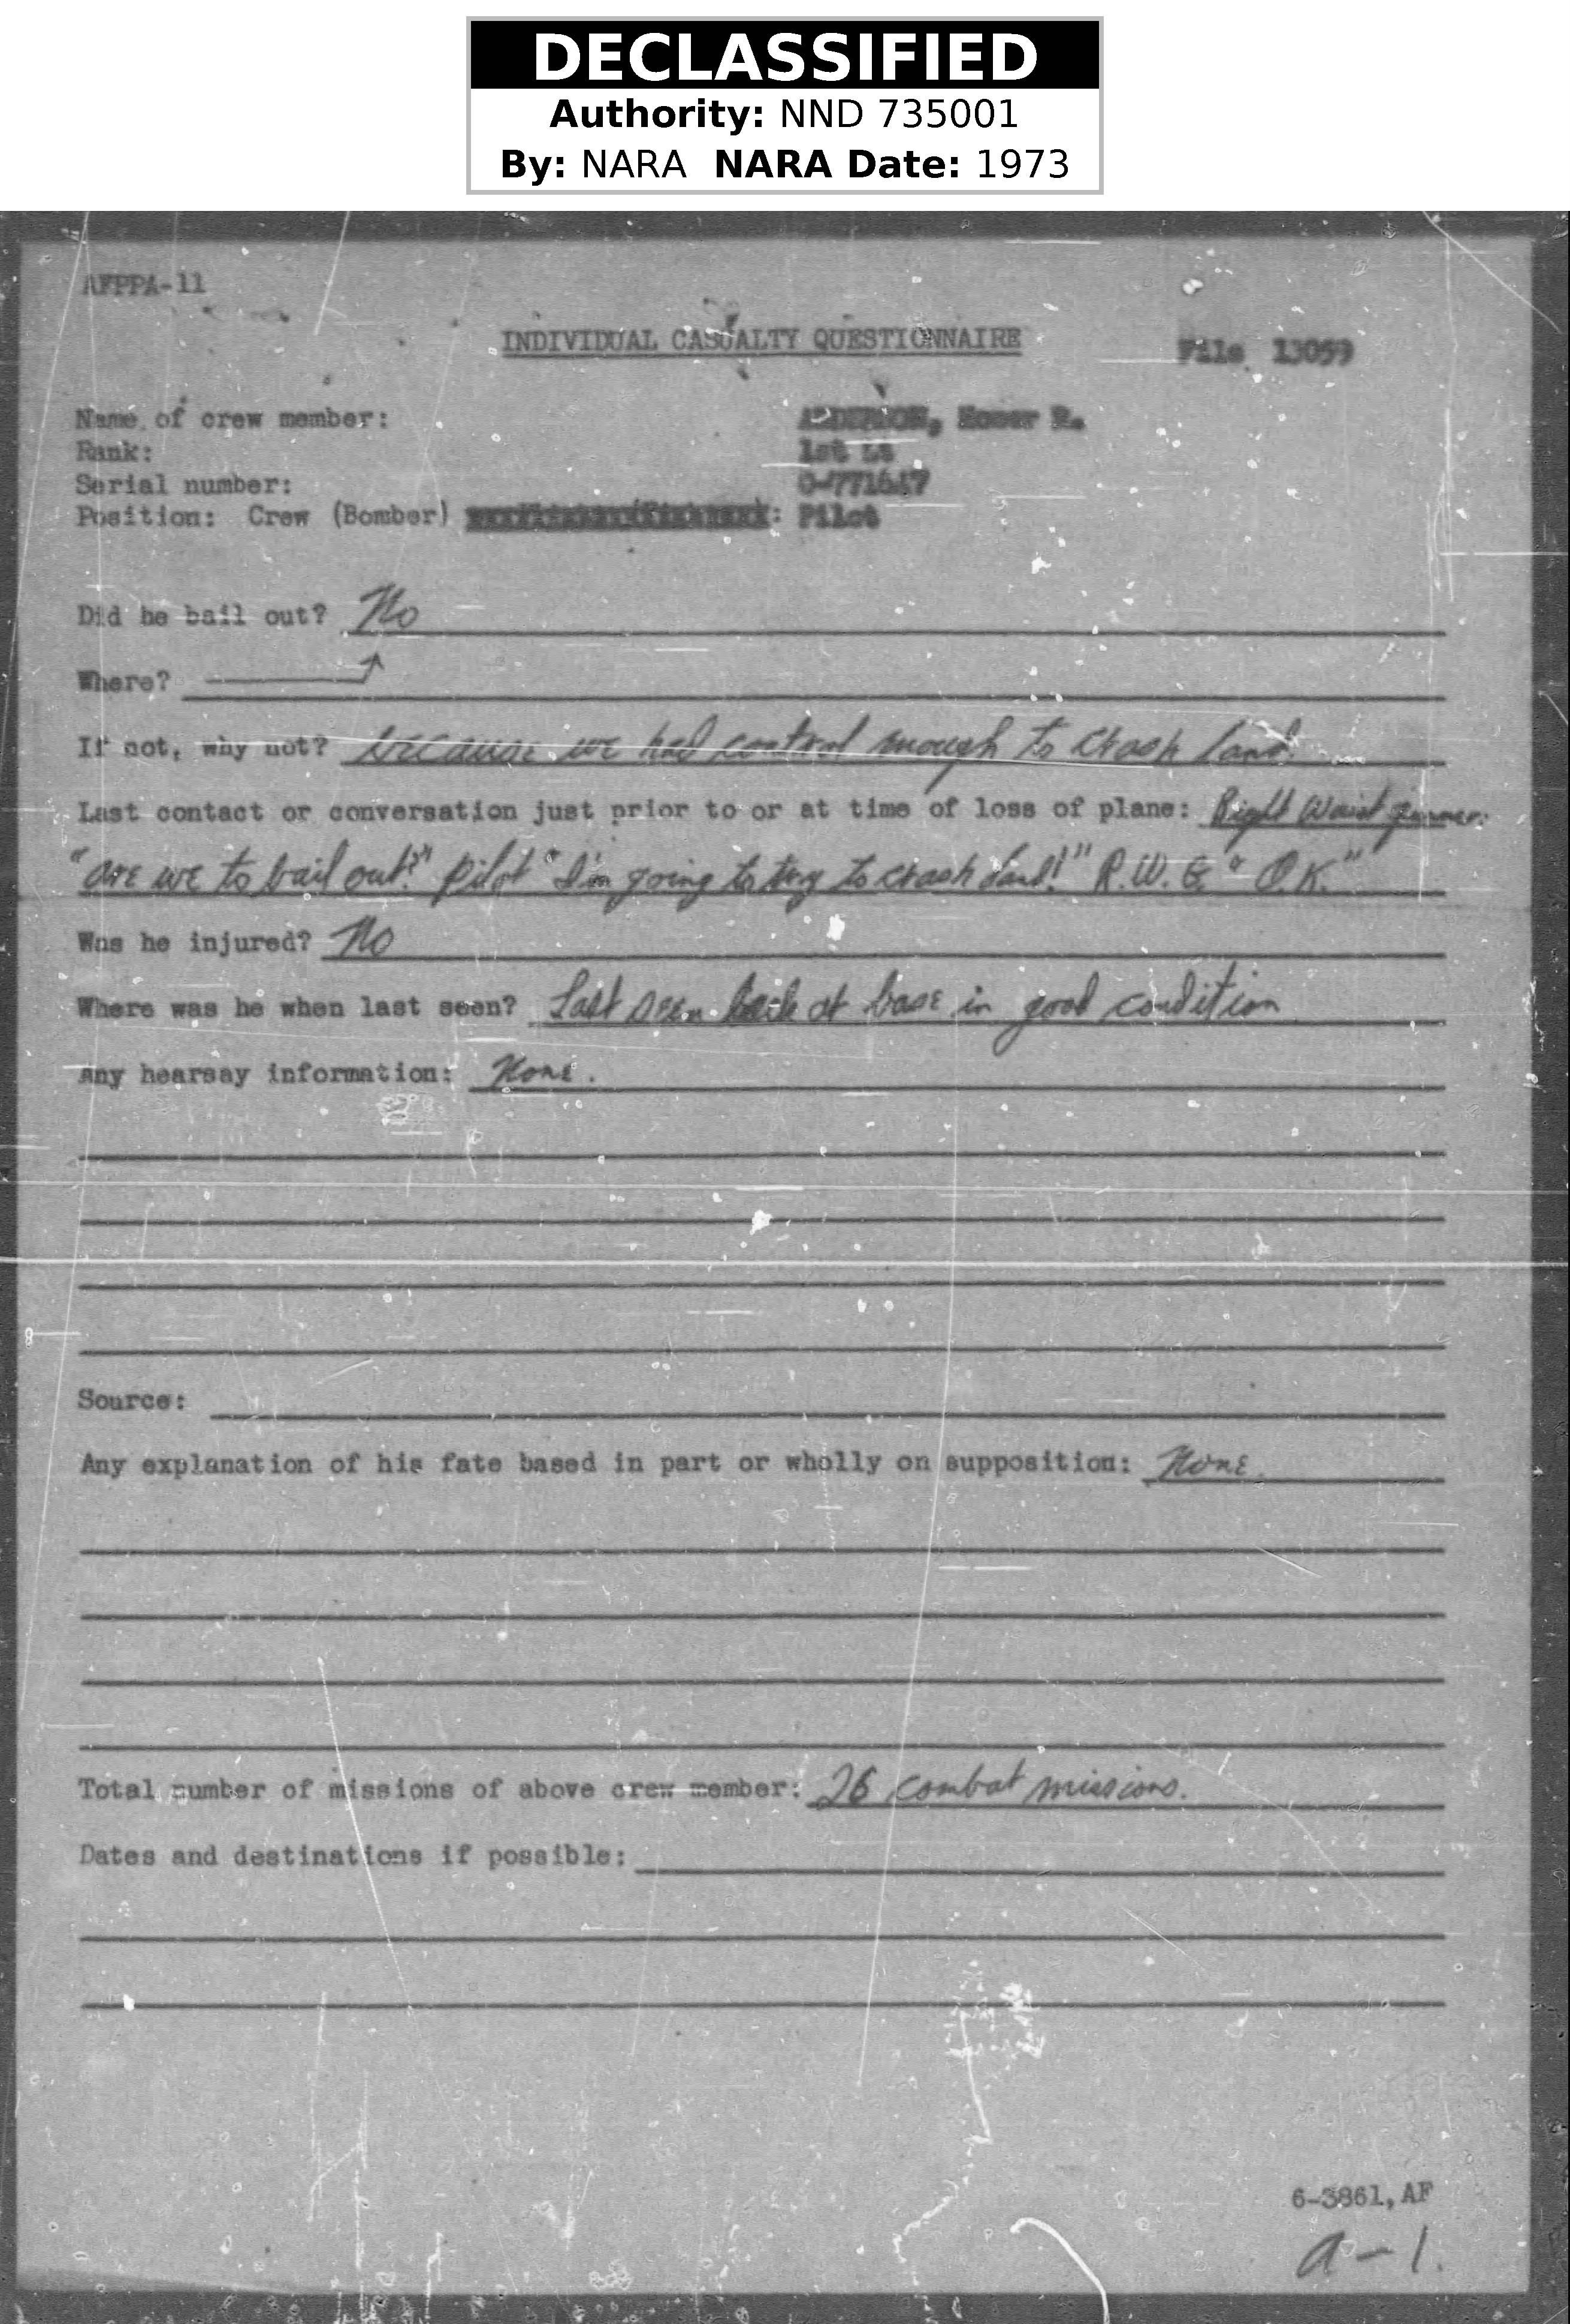 DECLASSIFIED
Authority: NND 735001
By: NARA NARA Date: 1973
AFPPA-11
INDIVIDUAL CASUALTY QUESTIONNAIRE
File 13059
Name of crew member: ANDERSON, Homer R.
Rank: 1st Lt
Serial number:
Position: Crew (Bomber) : Pilot
Did he bail out? No
Where?
If not, why not? because we had control enough to crash land.
Last contact or conversation just prior to or at time of loss of plane: Right Waist gunner:
"are we to bail out?" pilot "I'm going to try to crash land!" R.W.G. "O.K."
Was he injured? No
Where was he when last seen? Last seen back at base in good condition
Any hearsay information: None.
Source:
Any explanation of his fate based in part or wholly on supposition: None.
Total number of missions of above crew member: 26 combat missions.
Dates and destinations if possible:
6-3861, AF
a-1.